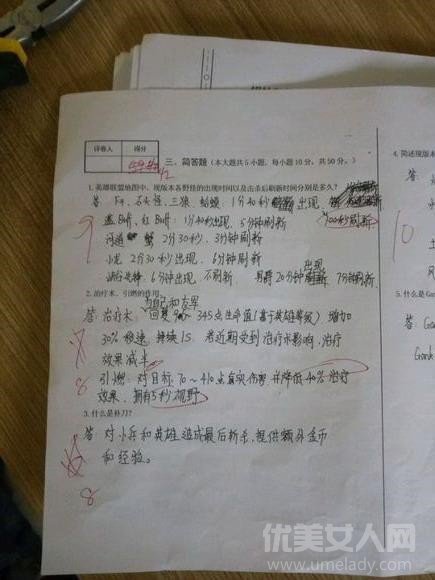 评卷人 得分
三、简答题（本大题共5小题，每小题10分，共50分。）
1.英雄联盟地图中，现版本各野怪的出现时间以及击杀后刷新时间分别是多久？
答: F4、石头怪、三狼、蛤蟆: 1分40秒出现, 100秒刷新
蓝Buff、红Buff: 1分40秒出现, 5分钟刷新
河道蟹 2分30秒, 3分钟刷新
小龙 2分30秒出现, 6分钟刷新
峡谷先锋 6分钟出现 不刷新 20分钟出现 7分钟刷新
9
2.治疗术、引燃的作用
与自己和友军
答: 治疗术: 回复90~345点生命值(基于英雄等级) 增加
30%移速 持续1S. 若近期受到治疗术影响, 治疗
效果减半
引燃: 对目标70~410点真实伤害 并降低40%治疗
效果, 拥有5秒视野
8
3.什么是补刀?
答: 对小兵和英雄造成最后斩杀, 提供额外金币
和经验。
8
4.简述现版
答:
10
5.什么是Ga
答: Ga
Gank
优美女人网
www.umelady.com